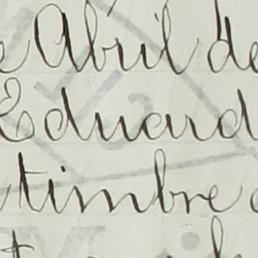 e Abril de
Eduard
timbre